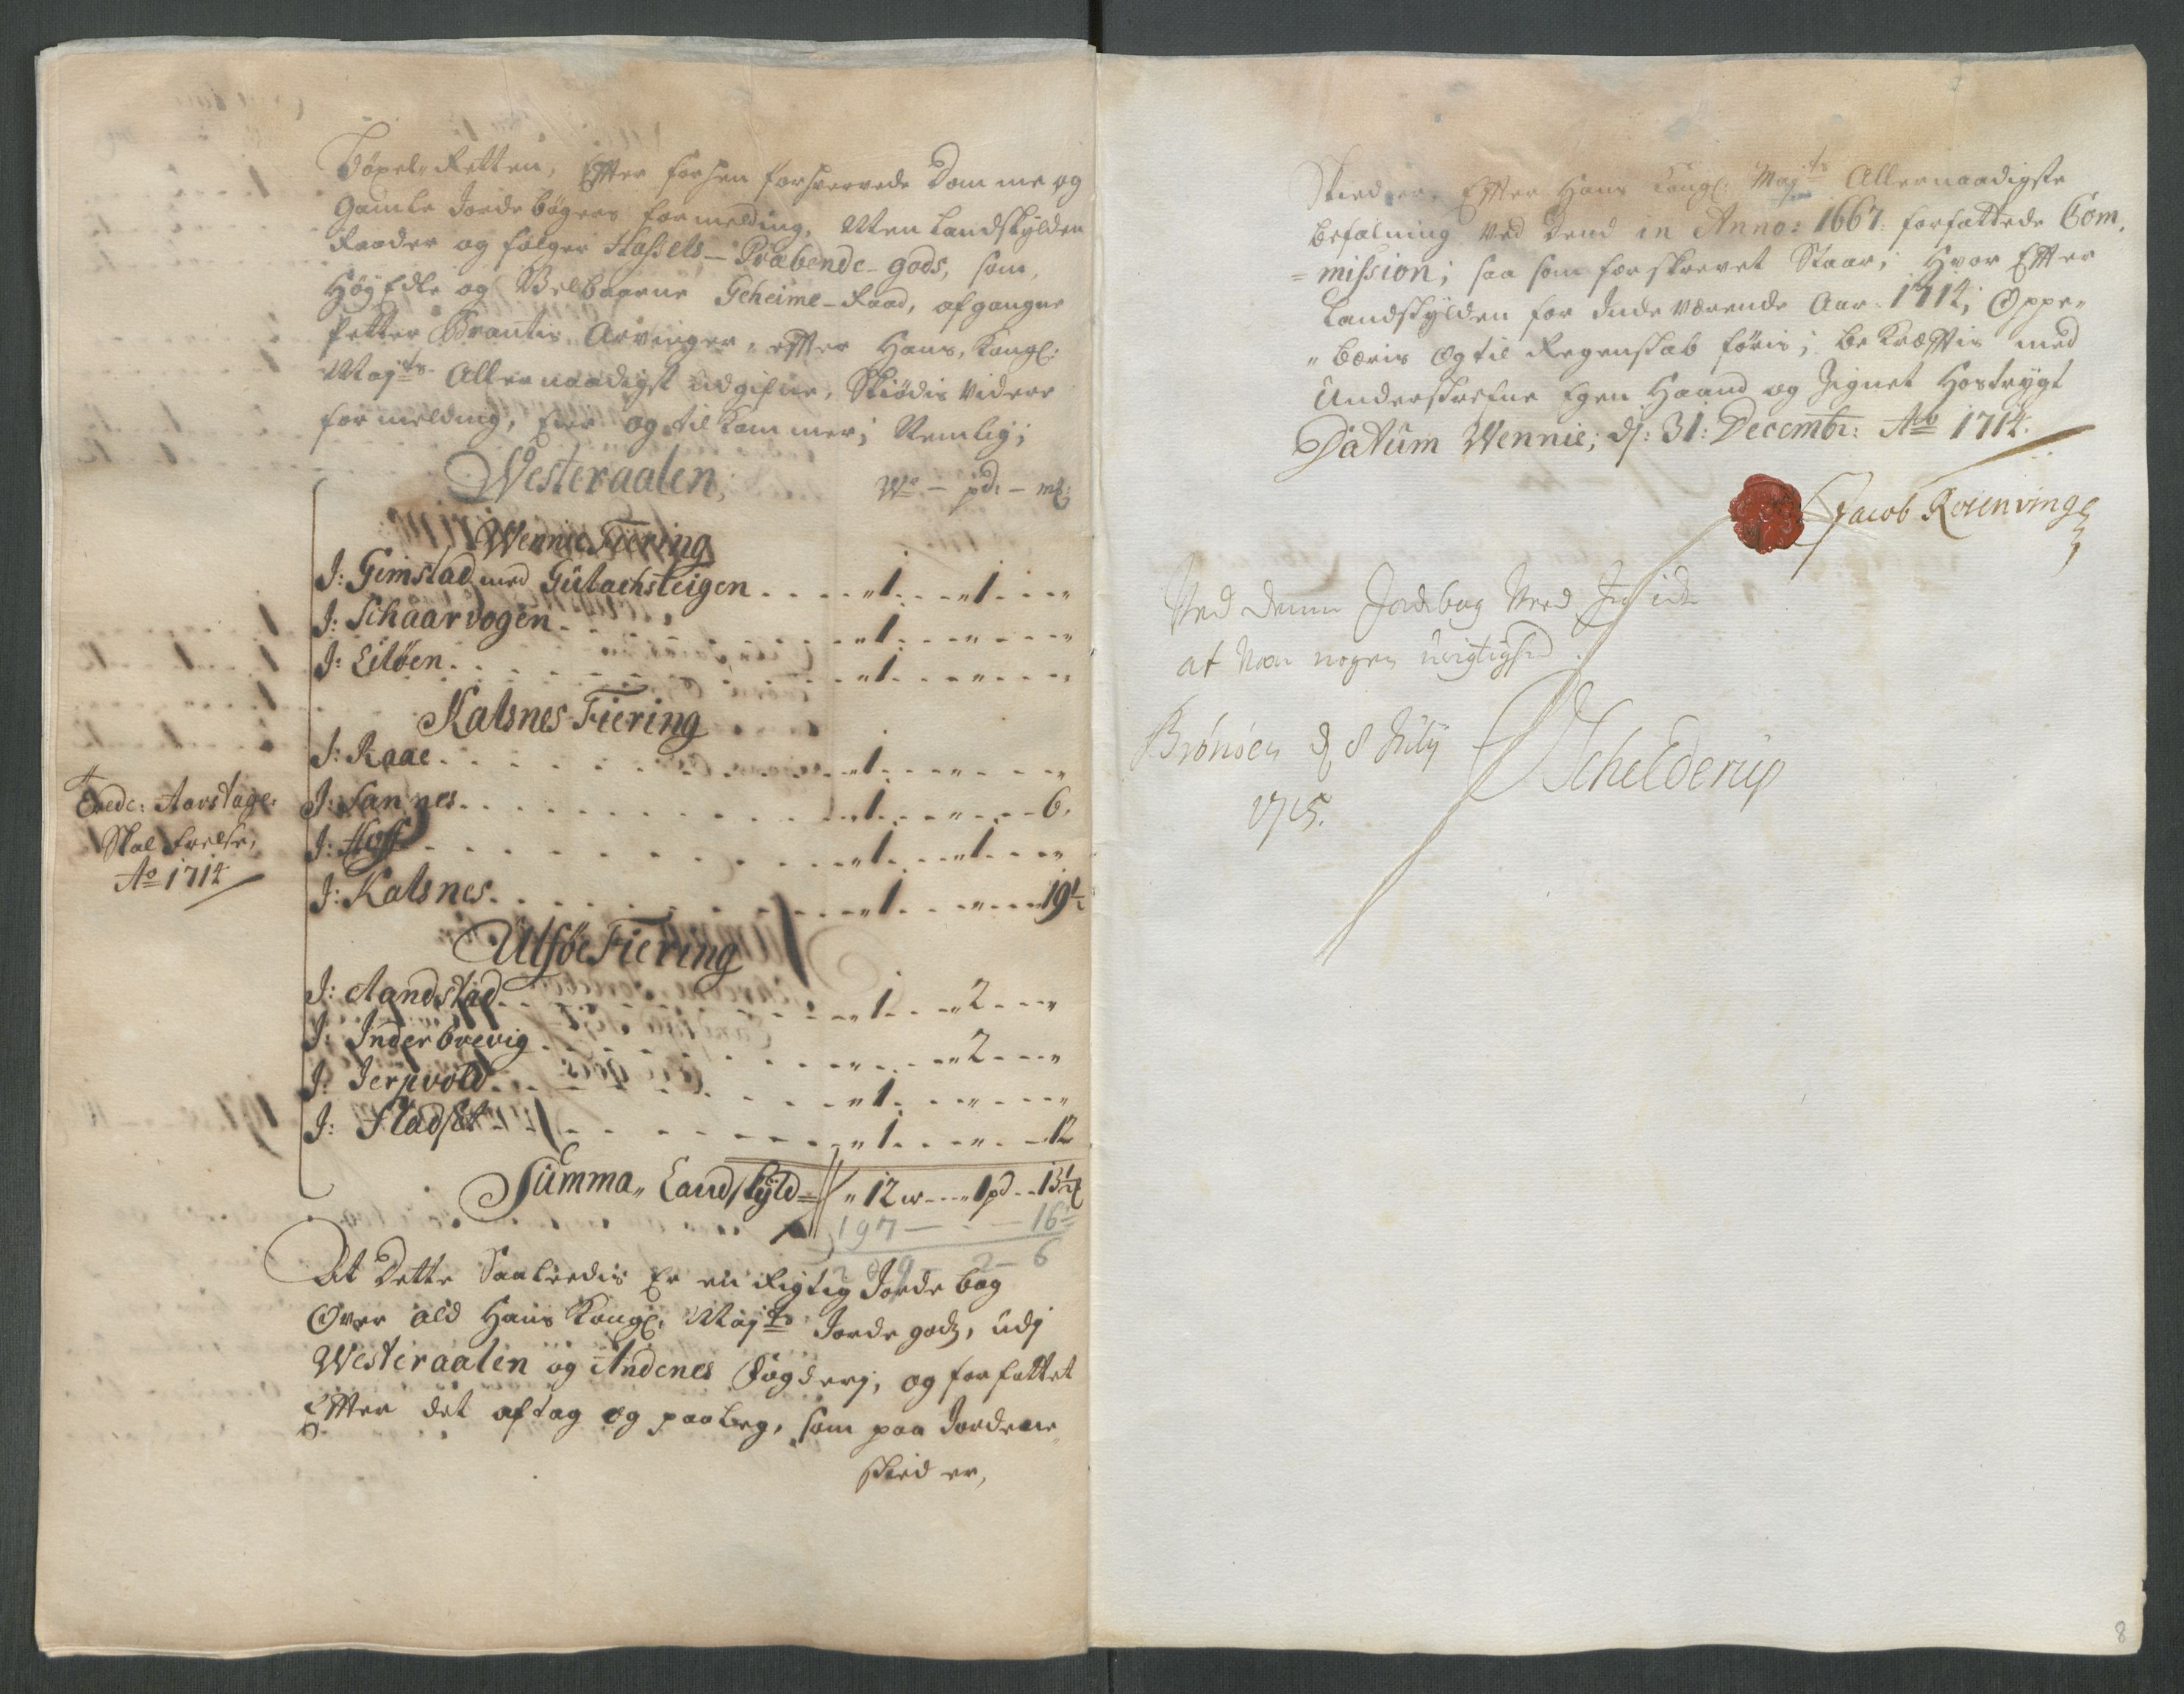 Böxel-Retten, Effter forhen forhvervede Domme og
Gamle Jordebögers formelding, Men Landskylden
Raader og fölger Hassels-Præbende-gods, som
HögEdle og Velbaarne Geheime-Raad, afgangne
Petter Brantis Arvinger, effter Hans Kongl:
Maj:ts Allernaadigst udgifne, Skiödis videre
formelding, Eier og tilkommer; Nemlig;
Westeraalen;
W: - pd: - mk:
Wennie Fiering
J: Gimstad med Gulachsteigen . . . . „ 1 . . . „ 1 . . . „
J: Schaarvogen . . . „ 1 . . . „ . . . „
J: Eilöen . . . „ 1 . . . „ . . . „
Kalsnes Fiering
J: Raae . . . „ 1 . . . „ . . . „
J: Sannes . . . „ 1 . . . „ . . . 6.
J: Hoff . . . „ 1 . . . „ 1 . . . „
J: Kalsnes . . . „ 1 . . . „ . . . 19½
Trede: Aarstage:
Skal
Ao 1714
Ulföe Fiering
J: Aandstad . . . „ 1 . . . „ 2 . . . „
J: Inderbrevig . . . „ . . . „ 2 . . . „
J: Jerpvold . . . „ 1 . . . „ . . . „
J: Fladset . . . „ 1 . . . „ . . . 12
Summa„ Landskyld= „ 12 w . . . „ 1 pd . . 13½
197 — . — 16½
209 - 2 - 6
At Dette Saaledis Er en Rigtig Jordebog
Over ald Hans Kongl: Maj:ts Jordegods, udj
Westeraalen og Andenes Fogderj, og forfattet
Effter det aftag og paaleg, som paa Jorderne
skied er,
Skied er, Effter Hans Kongl: Maj:ts Allernaadigste
befalning ved Dend in Anno: 1667. forfattede Com,
=mission; saa som forskrevet Staar; Hvor Effter
Landskylden for Indeværende Aar 1714; Oppe„
„bæris og til Regenskab föris; bekræfftis med
Underskrefne Egen Haand og Zignet Hostrÿgt
Datum Wennie; dj: 31: Decembr: Ao 1714.
Jacob Rosenvinge
Ved denne Jordebog Veed Jeg icke
at Vær nogen urigtighed
Brönöen d 8 July
1715.
Schelderup
8